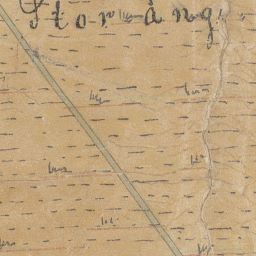 Stor-äng